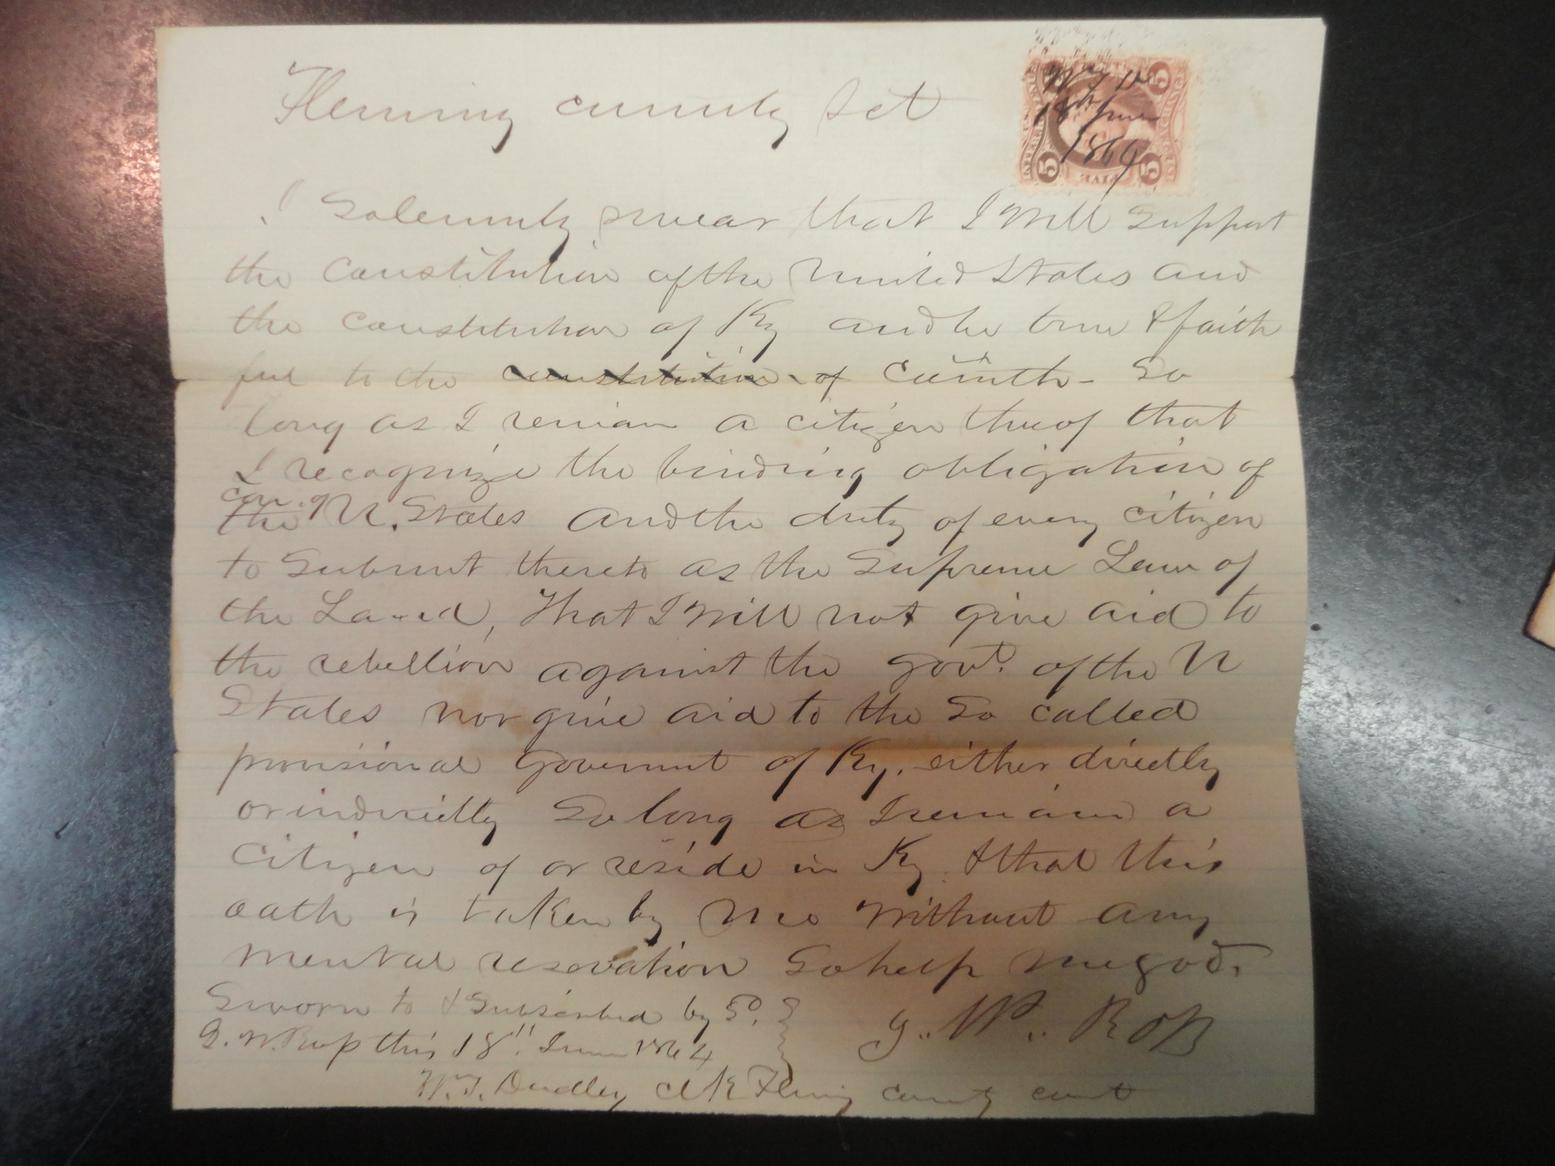 Fleming county Sct
W T D
18th June
1864
5 5
5 5
I Solemnly swear that I will support
the Constitution of the United States and
the Constitution of Ky and be true & faith
ful to the constitution of Cmnth - So
long as I remain a citizen thereof that
I recognize the binding obligation of
con. of
the U. States and the duty of every citizen
to Submit thereto as the Supreme Law of
the Land, that I will not give aid to
the rebellion against the Govt. of the U
States nor give aid to the So called
provisional Goverment of Ky. either directly
or indirectly So long as I remain a
Citizen of or reside in Ky & that this
oath is taken by me without any
mental reservation So help me god.
Sworn to & Subscribed by Sd.
G. W. this 18th June 1864
G. W.
W. T. Dudley Clk Fleming county court